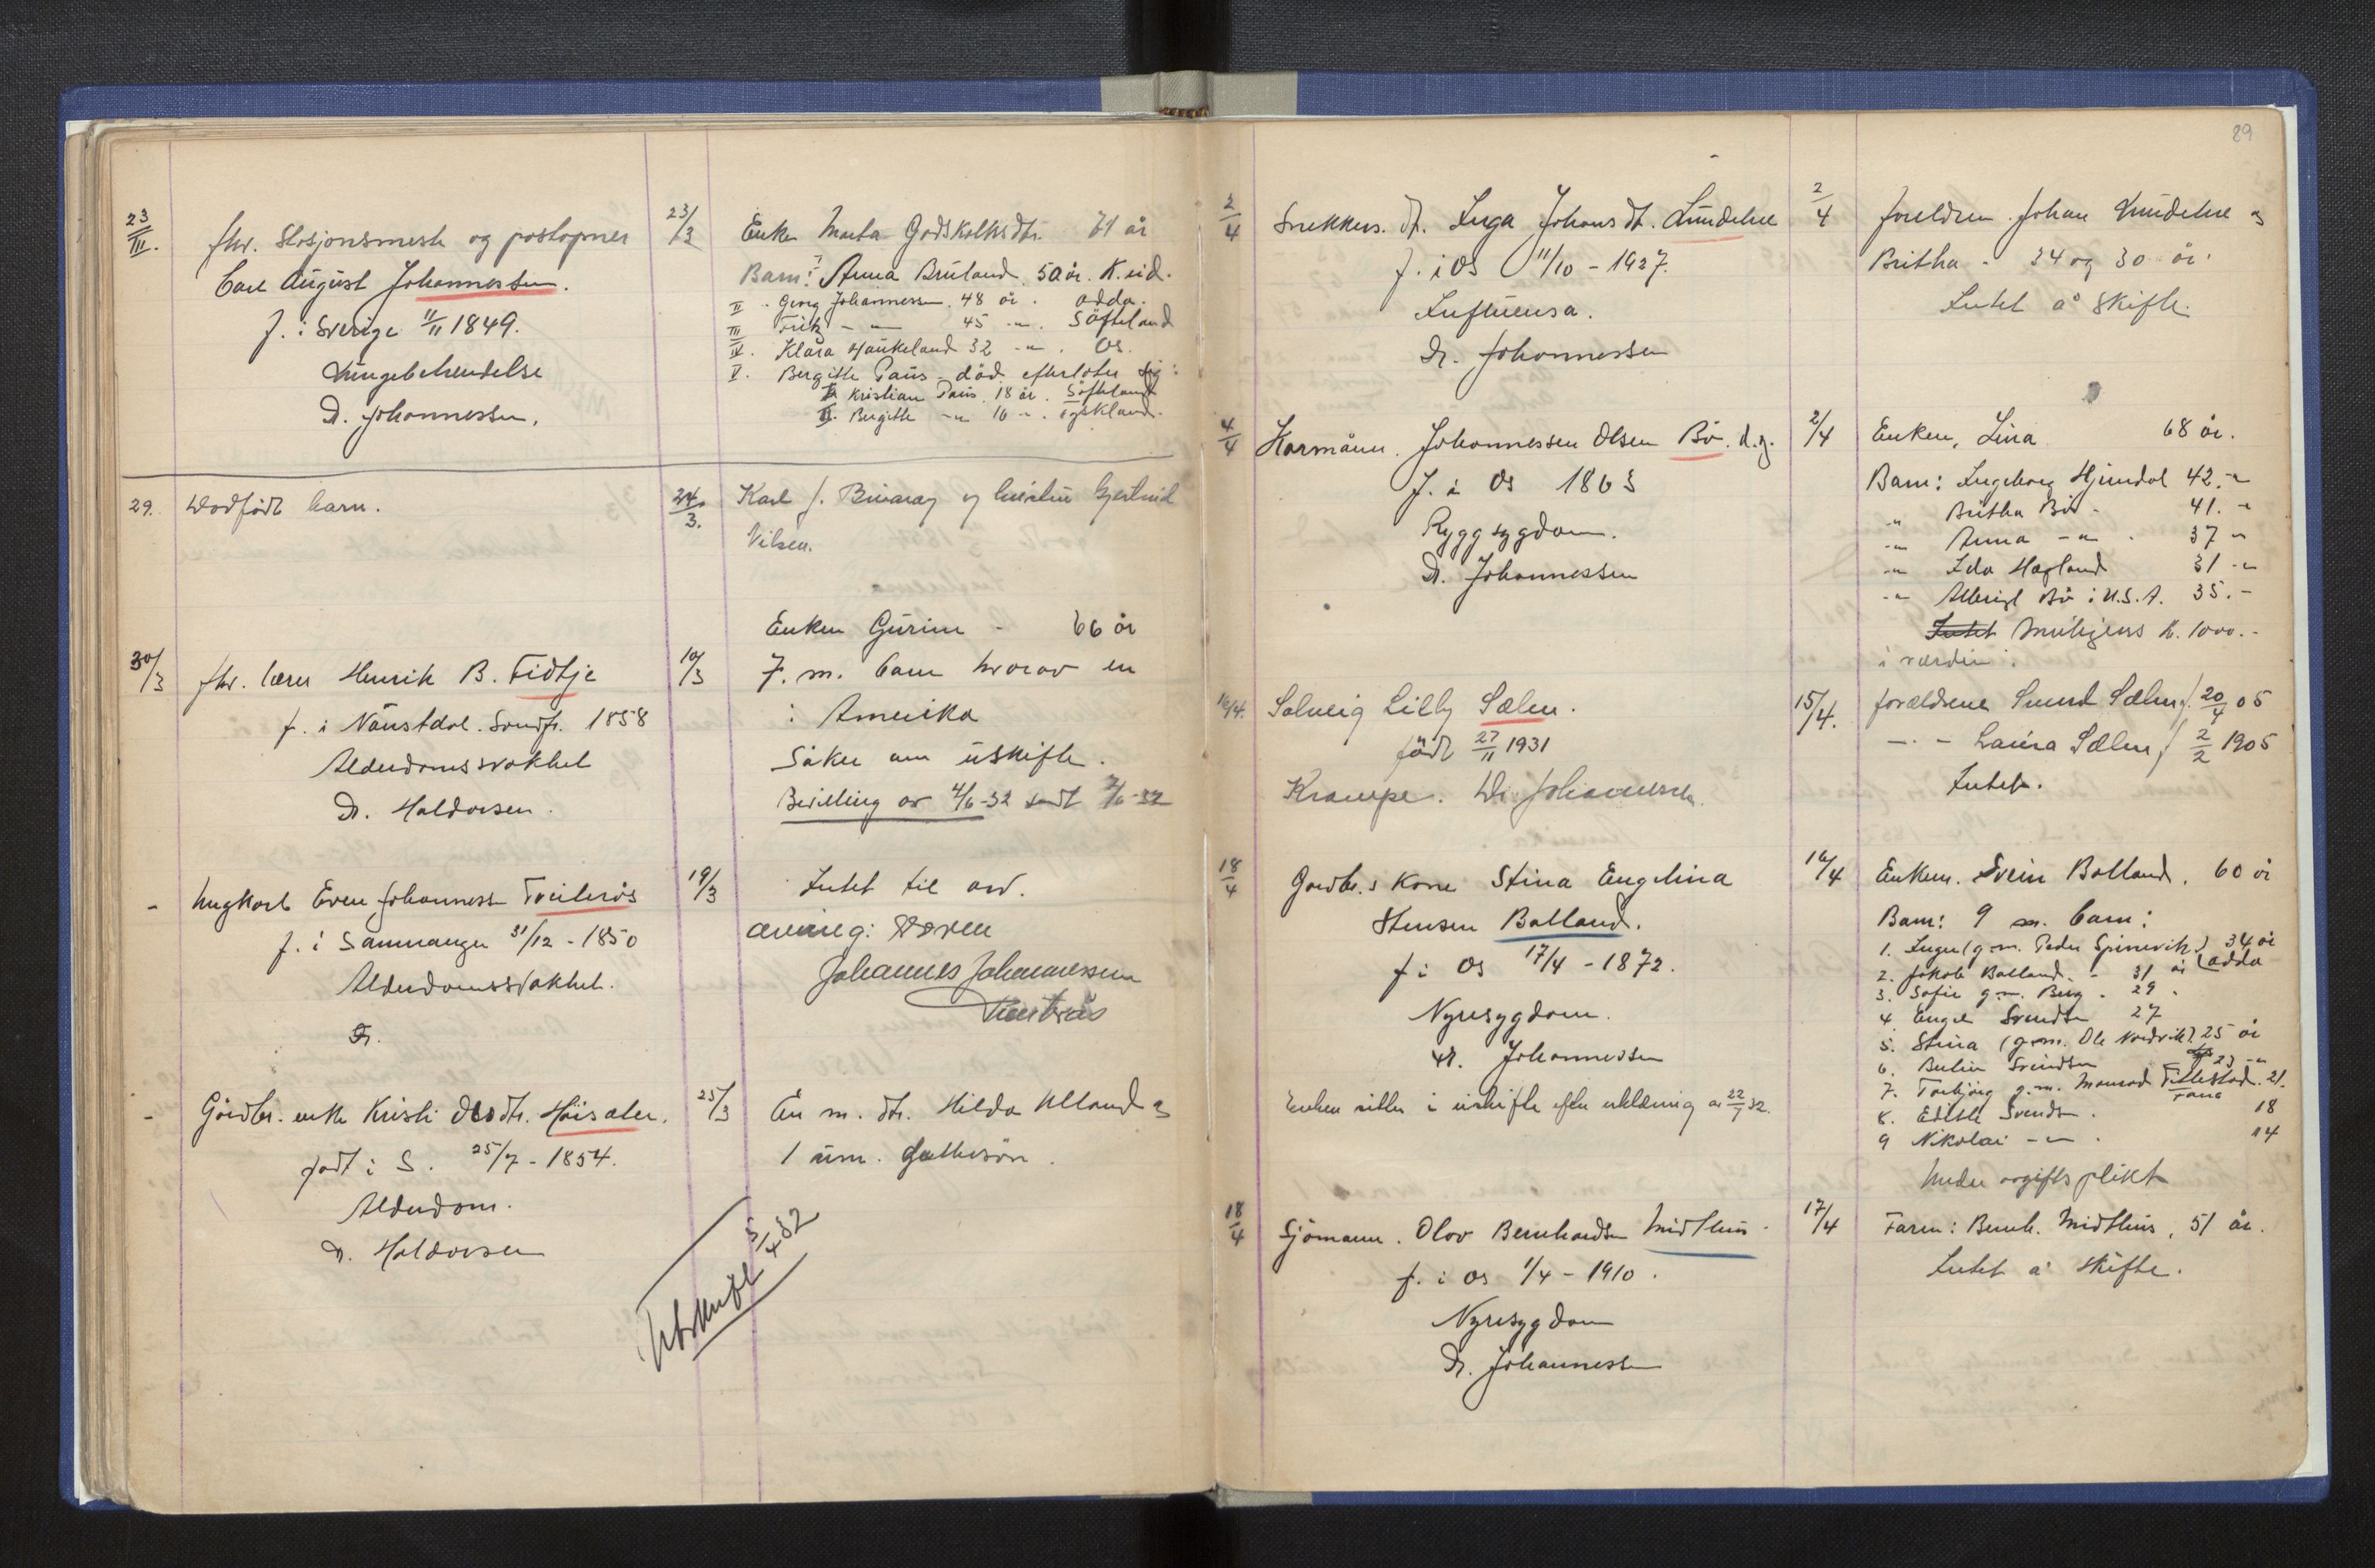 89
23/III.
fhv. Stasjonsmest. og postopner
Carl August Johannessen.
f. i Sverige 11/11 1849.
Lungebetendelse
Dr. Johannessen.
23/3
Enke Marta Godskalksdtr. 71 år
Barn: I Anna Bruland. 50 år. K.eid.
II . Georg Johannessen. 48 år. Odda.
III Frik - " 45 -". Söfteland
IV. Klara Haukeland 32 -". Os.
V. Bergitte Paus - död efterlater sig:
I. Kristian Paus. 18 år. Söfteland
II. Bergitte -" 16 -". Tyskland.
29.
Dødfødt barn.
24/3.
Karl J.
Nilsen.
30/3
fhv. lærer Henrik B. Tidtje
f. i Naustdal. Søndfj. 1858
Alderdomssvakhet
Dr. Haldorsen.
10/3
Enken Gurine - 66 år
7. m. barn hvorav en
i Amerika
Søker om uskifte.
Bevilling av 4/6-32 sendt 7/6-32
-
ungkarl Even Johannessen Tveiterås
f. i Samnanger 31/12 - 1850
Alderdomssvakhet.
Dr.
19/3
Intet til arv.
Johannes Johannessen
Tveiterås
-
Gårdbr. enke Kristi Olsdtr. Høisæter.
født i S. 25/7 - 1854.
Alderdom.
Dr. Haldorsen
25/3
En m. dtr. Hilda Ulland og
1 um. dattersøn.
Utskrift 5/4 32
2/4
Snekkers. dt. Inga Johans dt. Lundetræ
f. i Os 11/10 - 1927.
Influensa.
Dr. Johannessen
2/4
foreldren. Johan Lundetræ og
Britha - 34 og 30 år.
Intet å skifte.
4/4
Kårmann. Johannessen Olsen Bø. d.y.
f. i Os 1863
Ryggsygdom.
Dr. Johannessen
2/4
Enken, Lina 68 år.
Barn: Ingeborg Hjendal 42.-"
-" Britha Bø - 41. -"
-" Anna -" . 37 -"
-" Ida Hagland 31 -"
-" Albrigt Bø i U.S.A. 35. -
Intet Muligens K. 1000.-
i værdier.
16/4.
Solveig Lilly Sælen.
født 27/11 1931
Krampe. Dr. Johannessen.
15/4.
forældrene Svend Sælen f. 20/4 05
-.- Laura Sælen f 2/2 1905
Intet.
18/4
Gardbr.s Kone Stina Engelina
Stensen Bolland.
f i Os 17/4 - 1872.
Nyresygdom.
Dr. Johannessen
Enken sitter i uskifte efter erklæring av 22/7 32.
16/4
Enkem. Svein Bolland. 60 år
Barn: 9 m. barn:
1. Inger (g.m. Peder Spinnvik) 34 år
2. Jakob Bolland. - 31 år Odda
3. Sofie g.m. Berg. 29.
4 Engel Svendsen 27
5. Stina (g.m. Ole Nordvik) 25 år
6. Berlin Svendsen 23 -"
7. Torbjörg g.m. Monrad Titlestad. 21.
Fana
8. Edith Svendsen. 18
9 Nikolai -" . 14
Under avgiftsplikt
18/4
Sjömann. Olav Bernhardsen Midthus.
f. i Os 1/4 - 1910.
Nyresygdom
Dr. Johannessen
17/4
Faren: Bernh. Midthus, 51 år.
Intet å skifte.